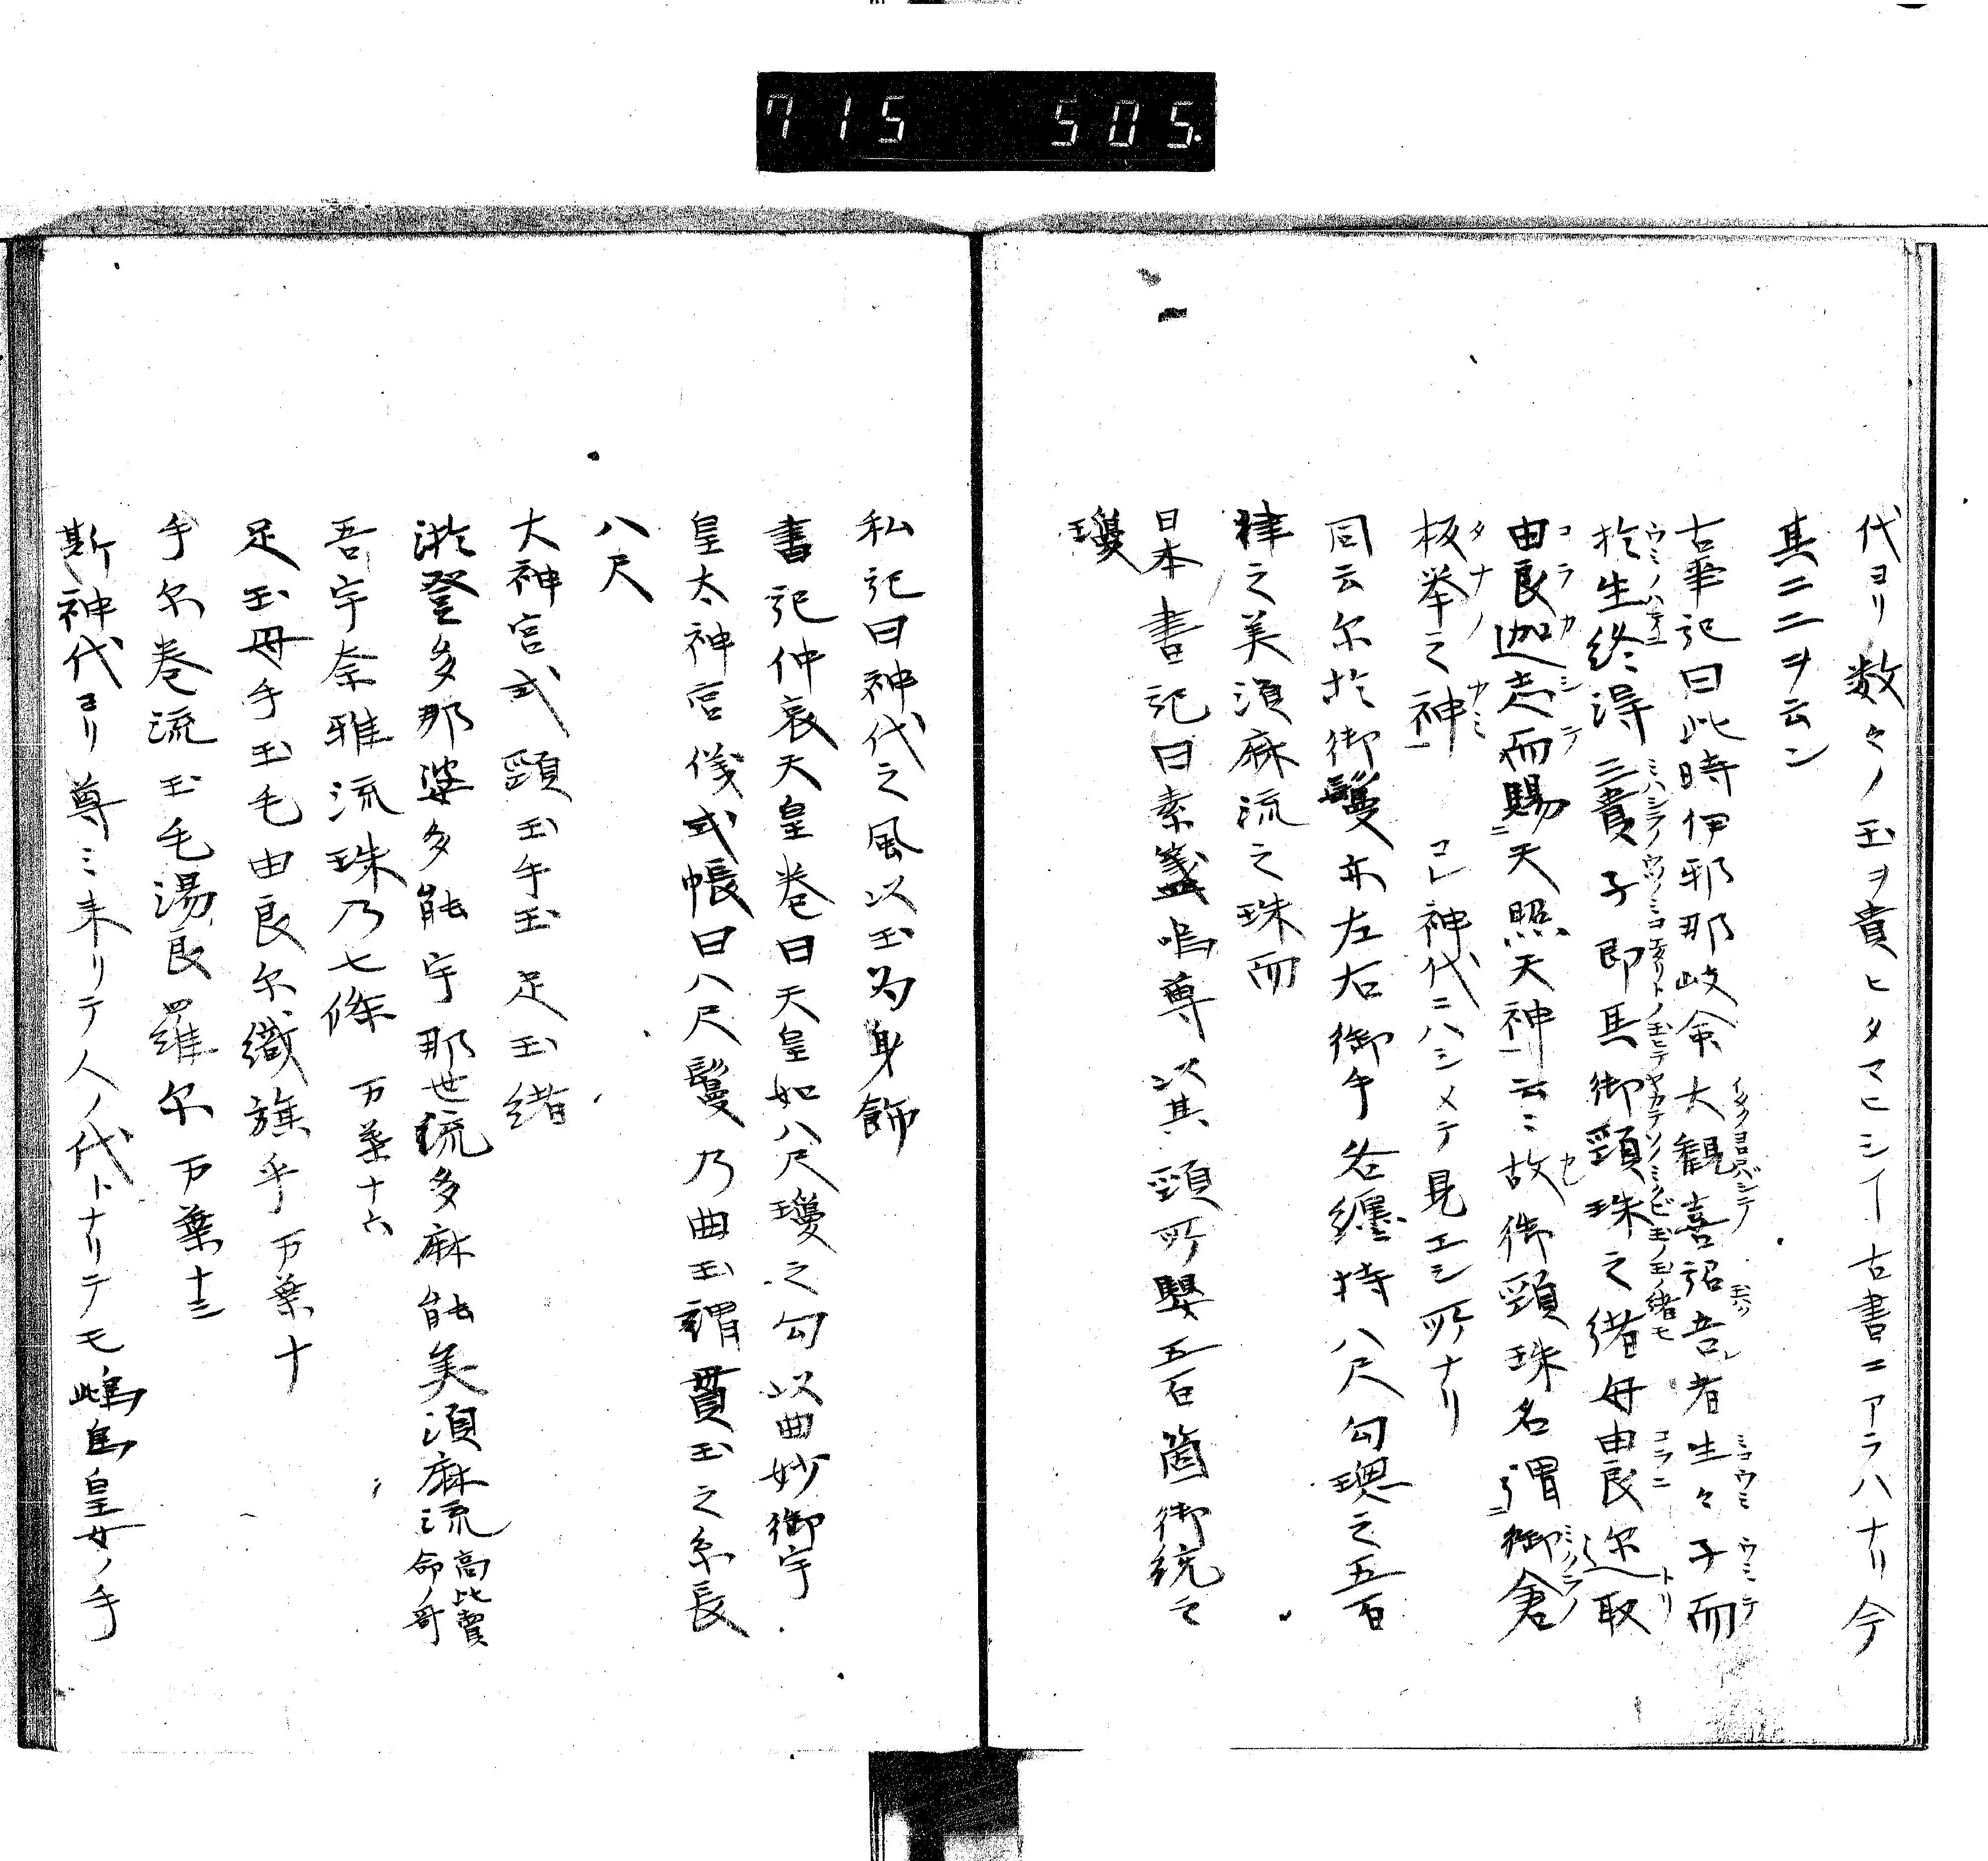 715 505.
代ヨリ数々ノ玉ヲ貴ヒタマヒシヿ古書ニアラハナリ今
其二三ヲ云ン
古事記曰此時伊邪那岐命大観喜詔吾者生々子而
於生終得三貴子即其御頸珠之緒母由良迩取
由良迦志而賜天照天神云云故御頸珠名謂御倉
板挙之神 コレ神代ニハシメテ見エシ所ナリ
同云尔於御鬘亦左右御手各纏持八尺勾璁之五百
津之美須麻流之珠而
日本書記曰素盞嗚尊以其頸所嬰五百箇御統之
瓊
私記曰神代之風以玉為身飾
書記仲哀天皇巻曰天皇如八尺瓊之勾以曲妙御宇
皇太神宮儀式帳曰八尺鬘乃曲玉謂貫玉之糸長
八尺
大神宮式頸玉手玉足玉緒
淤登多那婆多能宇那世流多麻能美須麻流 高比賣命ノ哥
吾宇奈雅流珠乃七條 万葉十六
足玉母手玉毛由良尔織旗乎 万葉十
手尔巻流玉毛湯良羅尔 万葉十三
斯神代ヨリ尊ミ来リテ人ノ代トナリテモ嶋皇女ノ手